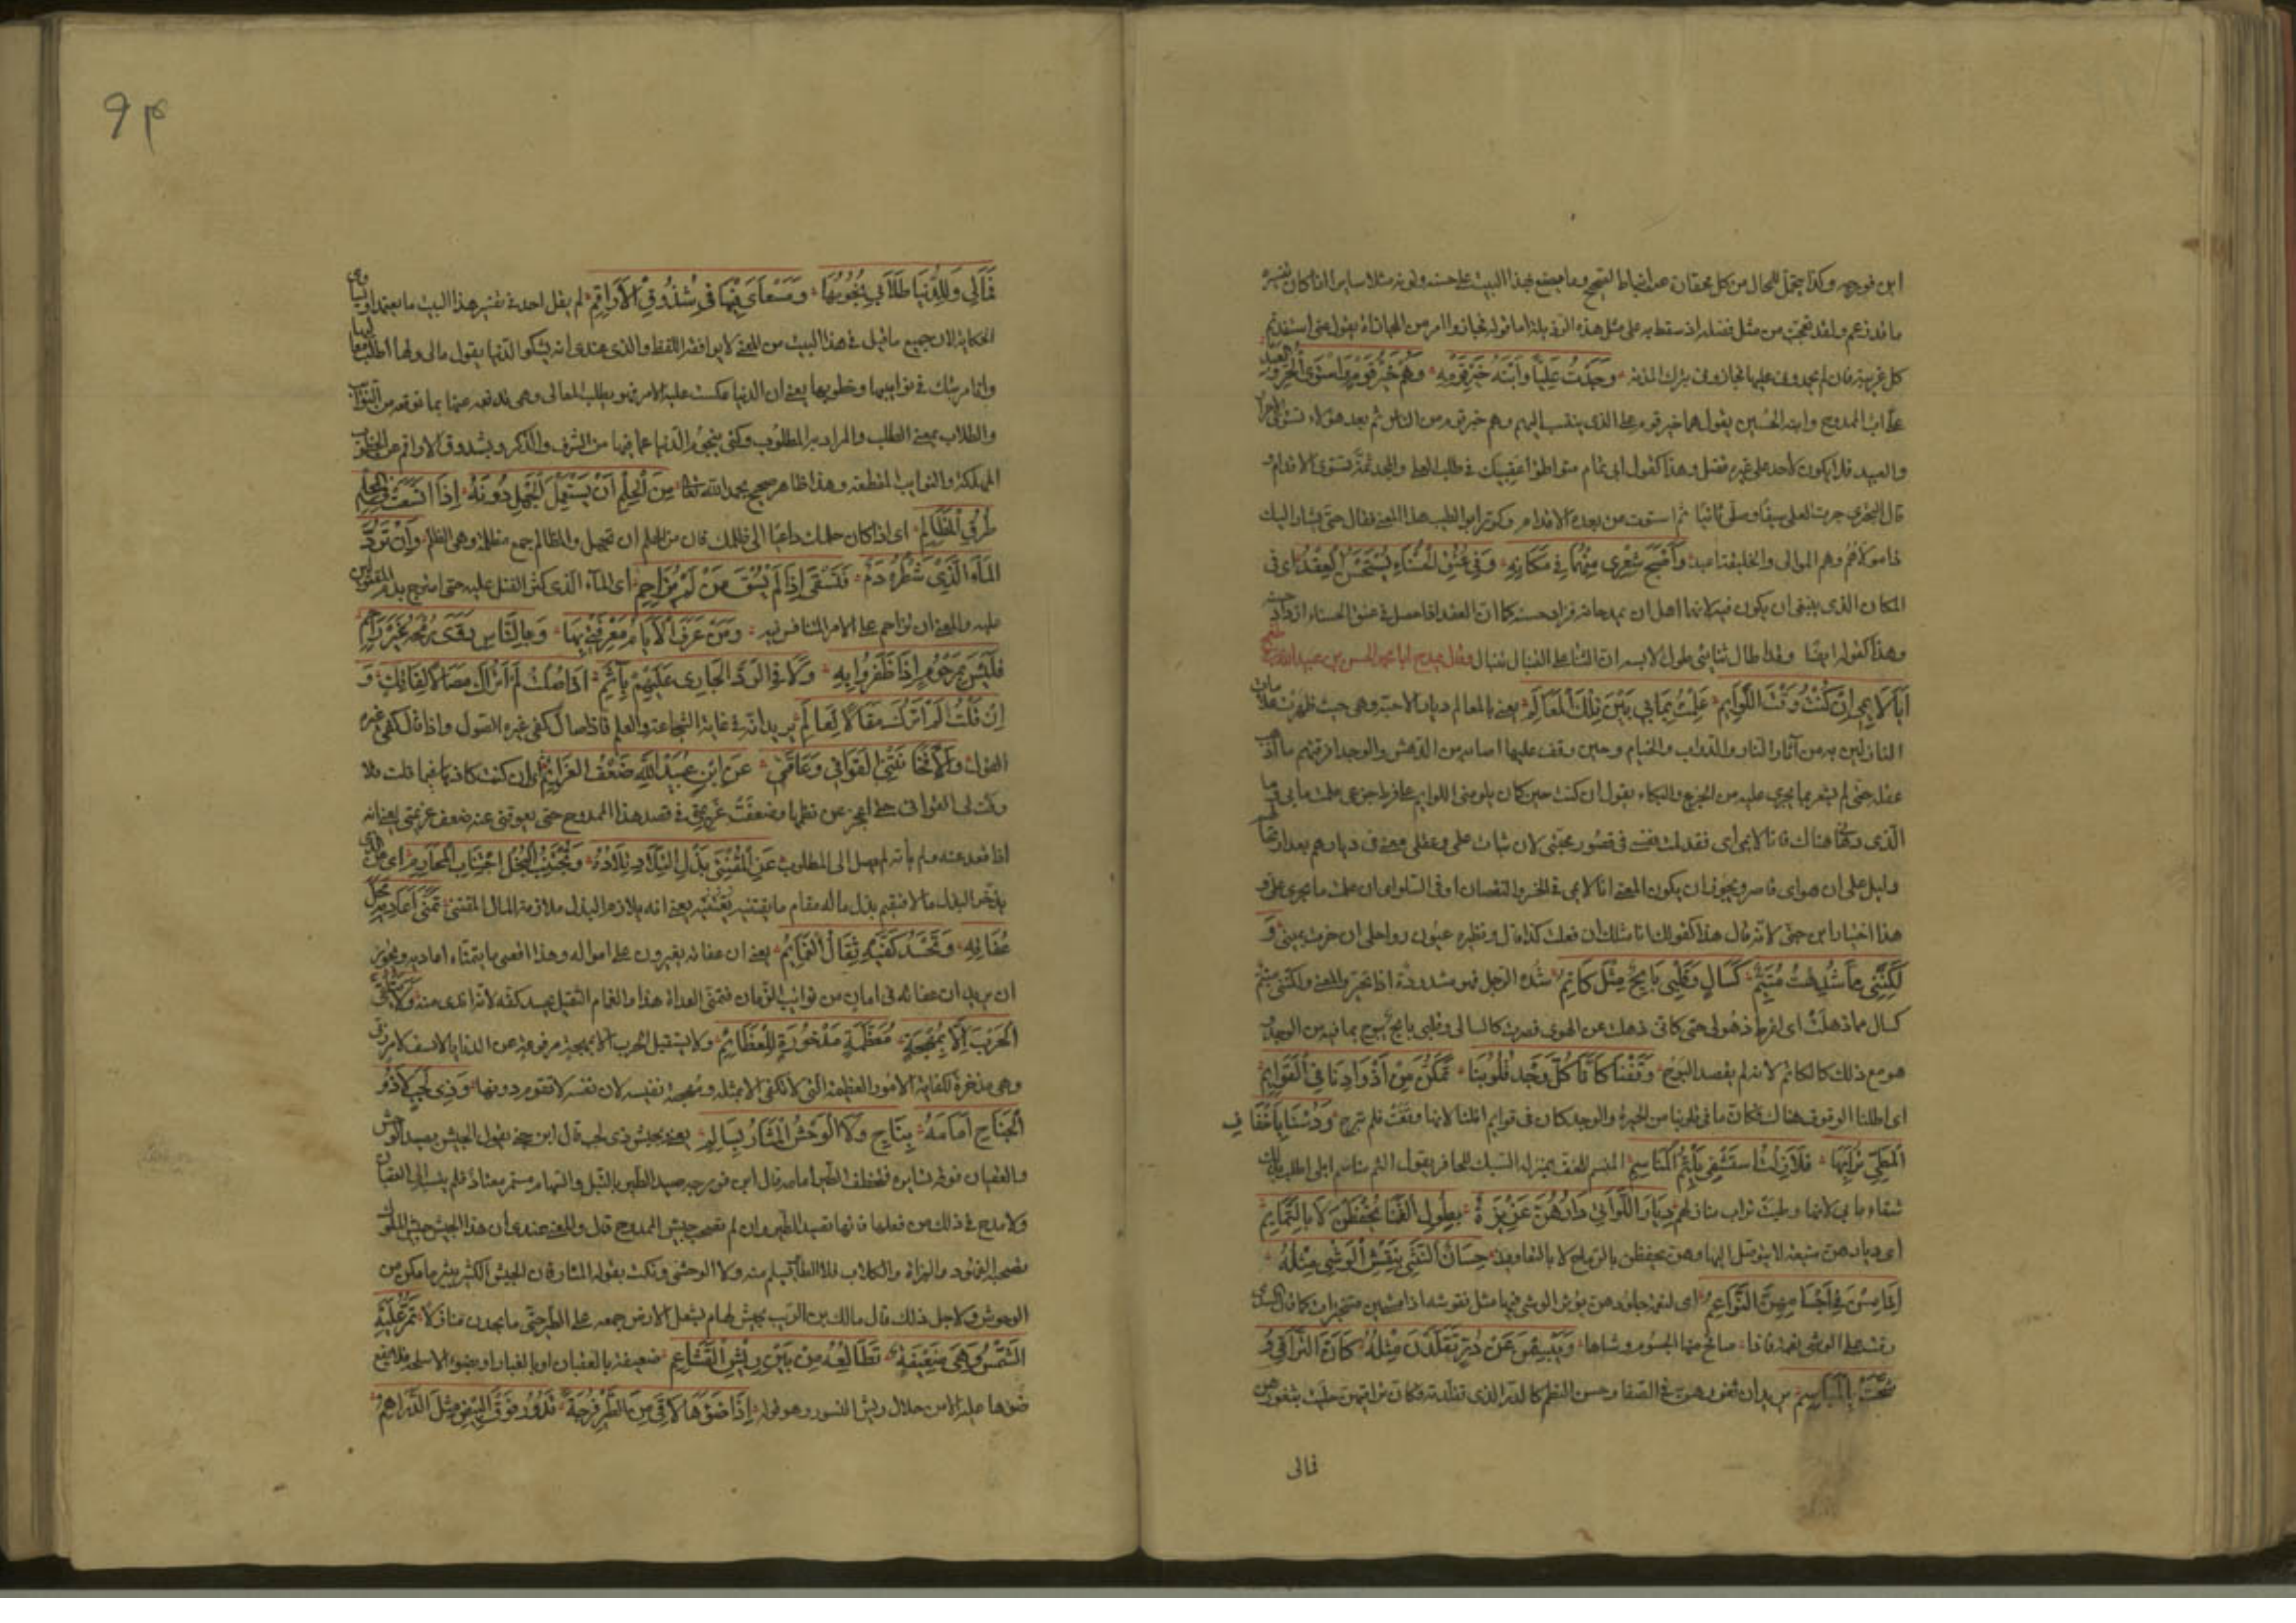 ابن فورجه وكذا يتمحل للمحال من كل
ما قد زعم ولقد تعجبت من مثل فضله اذ سقط به على مثل هذه الرذيلة اما قوله نجاز وا امر من المجازاة يقول متى استفدتم
كل غريبة فان لم تجدوني عليها نجازوني بترك المذمة وَجَدْتُ عَلِيًّا وَابْنَهُ خَيْرَ قَوْمِهِ وَهُمْ خَيْرُ قَوْمٍ وَاسْتَوَى الْحُرُّ وَالْعَبْدُ
على اب الممدوح وابنه الحسين يقول هما خير قوم على الذى ينتسب اليهم وهم خير قوم من الناس ثم بعد هؤلاء تستوى الاحرار
والعبيد فلا يكون لاحد على غيره فضل وهذا كقول ابى تمام متواطؤا عقبيك فى طلب العلى والمجد ثمة تستوى الاقدام
قال البحترى حزت العلى سبقا وصلى ثانيا ثم استوت من بعده الاقدام وكرر ابو الطيب هذا المعنى فقال حتى يشار اليك
ذا مولاهم وهم الموالى والخليقة اعبد وَأَصْبَحَ شِعْرِي مِنْهُمَا فِي مَكَانِهِ وَفِي عُنُقِ الْحَسْنَاءِ يُسْتَحْسَنُ الْعِقْدُ اى فى
المكان الذى ينبغى ان يكون فيه لانهما اهل ان يمدحا به فزاد حسنه كما ان العقد اذا حصل فى عنق الحسناء ازداد حسنه
وهذا كقوله ايضا وقد اطال ثنائى طول لابسه ان الثناء على التنبال تنبال وقال يمدح ابا محمد الحسن بن عبيد الله بن طغج
أَنَا لَائِمِي إِنْ كُنْتُ وَقْتَ اللَّوَائِمِ عَلِمْتُ بِمَا بِي بَيْنَ تِلْكَ الْمَعَالِمِ يعنى بالمعالم ديار الاحبة وهى حيث ظهرت علامات
النازلين به من آثار النار والدواب والخيام وحين وقف عليها اصابه من الدهش والوجد لفرقتهم ما اذهب
عقله حتى لم يشعر بما يجرى عليه من الجزع والبكاء يقول ان كنت حين كان يلومنى اللوائم على فرط جزعى علمت ما بى وما
الذى دهانى هناك فانا لائمى اى فقد لمت نفسى فى قصور محبتى لان ثبات علمى وعقلى معى فى ديارهم بعد ارتحالهم
دليل على ان هواى قاصر ويجوز ان يكون المعنى انا لائمى فى الخسر والنقصان او فى السلو ان علمت ما يجرى على و
هذا اختيار ابن جنى لانه قال هذا كقولك انا مثلك ان فعلت كذا قال ونظيره عيون رواحلى ان حرت عينى و
لَكِنَّنِي مِمَّا شُدِهْتُ مُتَيَّمٌ كَسَالٍ وَقَلْبِي بَائِحٌ مِثْلُ كَاتِمِ شده الرجل فهو مشدوه اذا تحير والمعنى ولكننى متيم
كسال مما ذهلت اى لفرط ذهولى حتى كانى ذهلت عن الهوى فصرت كالسالى وقلبى بائح يبوح بما فيه من الوجد و
هو مع ذلك كالكاتم لانه لم يقصد البوح وَقَفْنَا كَأَنَّا كُلُّ وَجْدِ قُلُوبِنَا تَمَكَّنَ مِنْ أَذْوَادِنَا فِي الْقَوَائِمِ
اى اطلنا الوقوف هناك فكان ما فى قلوبنا من الحيرة والوجد كان فى قوائم ابلنا لانها وقفت فلم تبرح وَدُسْنَا بِأَخْفَافِ
الْمَطِيِّ تُرَابَهَا فَلَا زِلْتُ أَسْتَشْفِي بِلَثْمِ الْمَنَاسِمِ المنسم للخف بمنزلة السنبك للحافر يقول الثم مناسم ابلى اطلب بذلك
شفاء ما بى لانها وطئت تراب منازلهم دِيَارُ اللَّوَاتِي دَارُهُنَّ عَزِيزَةٌ بِطُولِ الْقَنَا يُحْفَظْنَ لَا بِالتَّمَائِمِ
اى ديارهن منيعة لا يتوصل اليها وهن يحفظن بالرماح لا بالتعاويذ حِسَانُ التَّثَنِّي يَنْقُشُ الْوَشْيُ مِثْلَهُ
إِذَا مِسْنَ فِي أَجْسَامِهِنَّ النَّوَاعِمِ اى لنعمة جلودهن يؤثر الوشى فيها مثل نقوشه اذا مشين متبخترات كما قال السرى
رقت على الوشى نعمة فاذا صافح منها الجسوم وشاها وَيَبْسِمْنَ عَنْ دُرٍّ تَقَلَّدْنَ مِثْلَهُ كَأَنَّ التَّرَاقِي وُ
شِّحَتْ بِالْمَبَاسِمِ يريد ان ثغورهن فى الصفاء وحسن النظم كالدر الذى تقلدنه فكان تراقيهن حليت بثغورهن
فمالى
٩٣
فَمَا لِي وَلِلدُّنْيَا طِلَابِي نُجُومُهَا وَمَسْعَايَ مِنْهَا فِي شُدُوقِ الْأَرَاقِمِ لم يقل احد فى تفسير هذا البيت ما يعتد او يساوى
الحكاية لان جميع ما قيل فى هذا البيت من المعنى لا يوافقه اللفظ والذى عندى انه يشكو الدنيا يقول مالى ولها اطلب معاليها
وانا مرتبك فى نوائبها وخطوبها يعنى ان الدنيا عكست عليه الامر فهو يطلب المعالى وهى تدفعه عنها بما توقعه من النوائب
والطلاب بمعنى الطلب والمراد به المطلوب وكنى بنجوم الدنيا عما فيها من الشرف والذكر وبشدوق الاراقم عن الخطوب
المهلكة والنوائب المفظعة وهذا ظاهر صحيح بحمد الله تعالى مِنَ الْحِلْمِ أَنْ تَسْتَعْمِلَ الْجَهْلَ دُونَهُ إِذَا اتَّسَعَتْ فِي الْحِلْمِ
طُرْقُ الْمَظَالِمِ اى اذا كان حلمك داعيا الى ظلمك فان من الحلم ان تجهل والمظالم جمع مظلمة وهى الظلم وَأَنْ تَرِدَ
الْمَاءَ الَّذِي شَطْرُهُ دَمٌ فَتُسْقَى إِذَا لَمْ يُسْقَ مَنْ لَمْ يُزَاحِمِ اى الماء الذى كثر القتل عليه حتى امتزج بدم المقتولين
عليه والمعنى ان تزاحم على الامر المتنافس فيه وَمَنْ عَرَفَ الْأَيَّامَ مَعْرِفَتِي بِهَا وَبِالنَّاسِ رَوَّى رُمْحَهُ غَيْرَ رَاحِمِ
فَلَيْسَ بِمَرْحُومٍ إِذَا ظَفِرُوا بِهِ وَلَا فِي الرَّدَى الْجَارِي عَلَيْهِمْ بِآثِمِ إِذَا صُلْتُ لَمْ أَتْرُكْ مَصَالًا لِفَاتِكٍ وَ
إِنْ قُلْتُ لَمْ أَتْرُكْ مَقَالًا لِعَالِمِ يريد انه فى غاية الشجاعة والعلم فاذا صال كفى غيره الصول واذا قال كفى غيره
القول وَإِلَّا فَخَانَتْنِي الْقَوَافِي وَعَاقَنِي عَنِ ابْنِ عُبَيْدِ اللَّهِ ضَعْفُ الْعَزَائِمِ اى ان كنت كاذبا فيما قلت فلا
وفت لى القوافى حتى اعجز عن نظمها وضعفت عزيمتى فى قصد هذا الممدوح حتى يعوقنى عنه ضعف عزيمتى يعنى انه
اذا قعد عنه ولم يأته لم يصل الى المطلوب عَنِ الْمُقْتَنِي بَذْلَ التِّلَادِ تِلَادَهُ وَمُجْتَنِبِ الْبُخْلِ اجْتِنَابَ الْمَحَارِمِ اى عن الذى
يدخر البذل مالا فيقيم بذل ماله مقام ما يقتنيه يعنى انه يلازم البذل ملازمة المال المقتنى تَمَنَّى أَعَادِيهِ مَحَلَّ
عُفَاتِهِ وَتَحْسُدُ كَفَّيْهِ ثِقَالُ الْغَمَائِمِ يعنى ان عفاته يغيرون على امواله وهذا اقصى ما يتمناه اعاديه ويجوز
ان يريد ان عفاته فى امان من نوائب الزمان فتمنى العداة هذا والغمام الثقيل يحسد كفه لانه اندى منه وَلَا يَتَلَقَّى
الْحَرْبَ إِلَّا بِمُهْجَةٍ مُعَظَّمَةٍ مَذْخُورَةٍ لِلْعَظَائِمِ ولا يستقبل الحرب الا بمهجة مرفوعة عن الدنايا لا تسف لامر دنى
وهى مذخرة لكفاية الامور العظيمة التى لا تكفى الا بمثله وبمهجة نفيسة لان نفسه لا تقوم دونها وَذِي لَجَبٍ لَا ذُو
الْجَنَاحِ أَمَامَهُ بِنَاجٍ وَلَا الْوَحْشُ الْمُثَارُ بِسَالِمِ يعنى بجيش ذى لجب قال ابن جنى يقول الجيش يصيد الوحش
والعقبان فوقه تسايره فتخطف الطير امامه قال ابن فورجه صيد الطير بالنبل والسهام مستمر معتاد فلم ينسب الى العقبان
ولا مدح فى ذلك من فعلها فانها تصيد الطير وان لم تصحب جيش الممدوح قال والمعنى عندى ان هذا الجيش جيش الملوك
تصحبه الفهود والبزاة والكلاب فلا الطائر يسلم منه ولا الوحش ونكت بقوله المثار فان الجيش الكثير يثير ما كمن من
الوحوش ولاجل ذلك قال مالك بن الريب بجيش لهام يشغل الارض جمعه على الطير حتى ما يجدن منازلا تَمُرُّ عَلَيْهِ
الشَّمْسُ وَهِيَ ضَعِيفَةٌ تُطَالِعُهُ مِنْ بَيْنِ رِيشِ الْقَشَاعِمِ ضعيفة بالعقبان او بالغبار او بضوء الاسلحة فلا يقع
ضوءها عليه الا من خلال ريش النسور وهو قوله إِذَا ضَوْءُهَا لَاقَى مِنَ الطَّيْرِ فُرْجَةً تَدَوَّرَ فَوْقَ الْبَيْضِ مِثْلَ الدَّرَاهِمِ